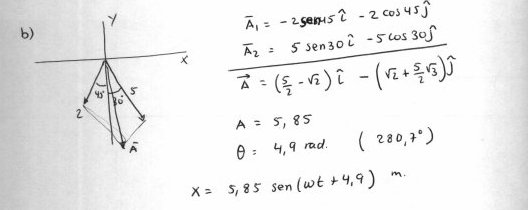 b)
Y
X
45°
30°
2
5
A̅
A̅₁ = - 2 sen 45 î - 2 cos 45 ĵ
A̅₂ = 5 sen 30 î - 5 cos 30 ĵ
A⃗ = (5/2 - √2) î - (√2 + 5/2 √3) ĵ
A = 5,85
θ = 4,9 rad. (280,7°)
X = 5,85 sen (wt + 4,9) m.